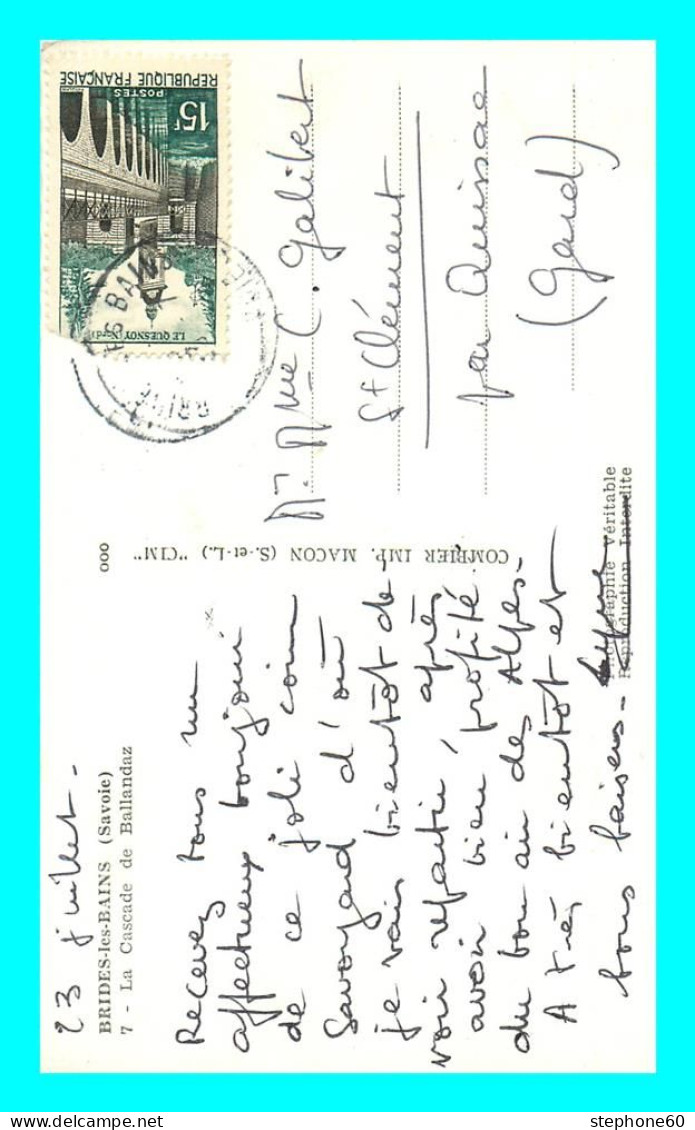 23 juillet -
BRIDES-les-BAINS (Savoie)
7 - La Cascade de Ballandaz
Recevez tous un
affectueux bonjour
de ce joli coin
Savoyard d'où
je vais bientôt de-
voir repartir, après
avoir bien profité
du bon air des Alpes.
A très bientôt et
bons baisers -
COMBIER IMP. MACON (S.-et-L.) "CIM"
Photographie Véritable
Reproduction Interdite
REPUBLIQUE FRANÇAISE
POSTES
15F
LE QUESNOY (Nord)
Mr. Mme C. Galibert
St Clément
par Quissac
(Gard)
stephone60